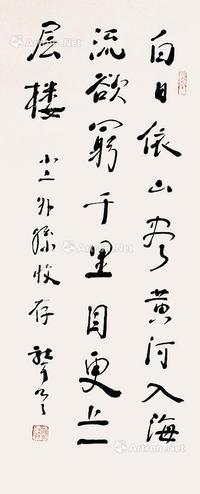 白日依山尽黄河入海
流欲穷千里目更上一
层楼
小上外孙收存